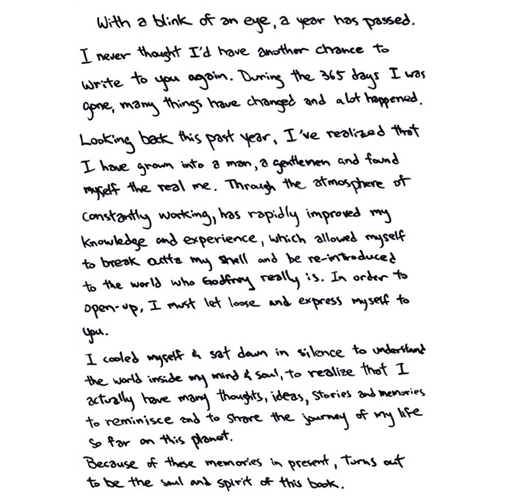 With a blink of an eye, a year has passed.
I never thought I'd have another chance to
write to you again. During the 365 days I was
gone, many things have changed and a lot happened.
Looking back this past year, I've realized that
I have grown into a man, a gentlemen and found
myself the real me. Through the atmosphere of
constantly working, has rapidly improved my
knowledge and experience, which allowed myself
to break outta my shell and be re-introduced
to the world who Godfrey really is. In order to
open-up, I must let loose and express myself to
you.
I cooled myself & sat down in silence to understand
the world inside my mind & soul, to realize that I
actually have many thoughts, ideas, stories and memories
to reminisce and to share the journey of my life
so far on this planet.
Because of these memories in present, turns out
to be the soul and spirit of this book.